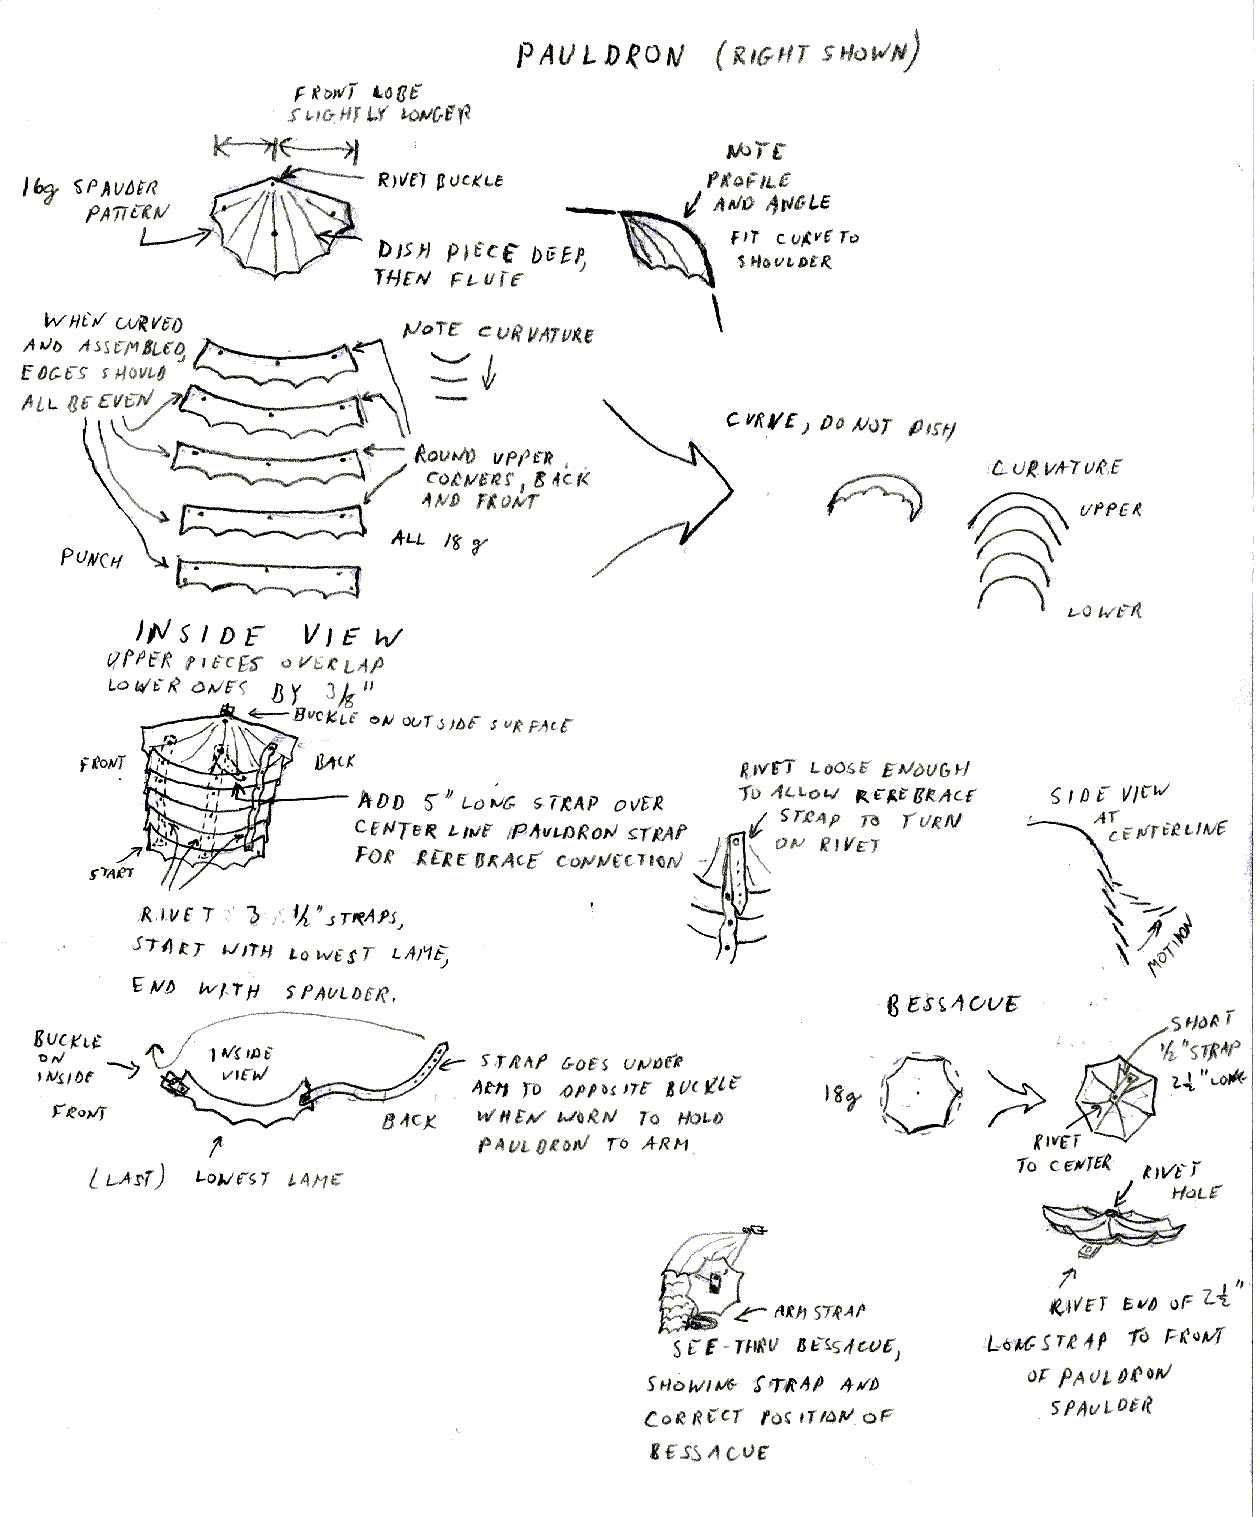 PAULDRON (RIGHT SHOWN)
FRONT LOBE
SLIGHTLY LONGER
RIVET BUCKLE
16g SPAUDER
PATTERN
DISH PIECE DEEP,
THEN FLUTE
NOTE
PROFILE
AND ANGLE
FIT CURVE TO
SHOULDER
WHEN CURVED
AND ASSEMBLED,
EDGES SHOULD
ALL BE EVEN
NOTE CURVATURE
ROUND UPPER
CORNERS, BACK
AND FRONT
ALL 18g
PUNCH
CURVE, DO NOT DISH
CURVATURE
UPPER
LOWER
INSIDE VIEW
UPPER PIECES OVERLAP
LOWER ONES BY 3/8"
BUCKLE ON OUTSIDE SURFACE
FRONT
BACK
ADD 5" LONG STRAP OVER
CENTER LINE PAULDRON STRAP
FOR REREBRACE CONNECTION
START
RIVET 3 1/2" STRAPS,
START WITH LOWEST LAME,
END WITH SPAULDER.
RIVET LOOSE ENOUGH
TO ALLOW REREBRACE
STRAP TO TURN
ON RIVET
SIDE VIEW
AT
CENTERLINE
MOTION
BUCKLE
ON
INSIDE
FRONT
INSIDE
VIEW
BACK
STRAP GOES UNDER
ARM TO OPPOSITE BUCKLE
WHEN WORN TO HOLD
PAULDRON TO ARM
(LAST) LOWEST LAME
BESSAGUE
18g
SHORT
1/2" STRAP
2 1/2" LONG
RIVET
TO CENTER
RIVET
HOLE
RIVET END OF 2 1/2"
LONG STRAP TO FRONT
OF PAULDRON
SPAULDER
ARM STRAP
SEE-THRU BESSAGUE,
SHOWING STRAP AND
CORRECT POSITION OF
BESSAGUE